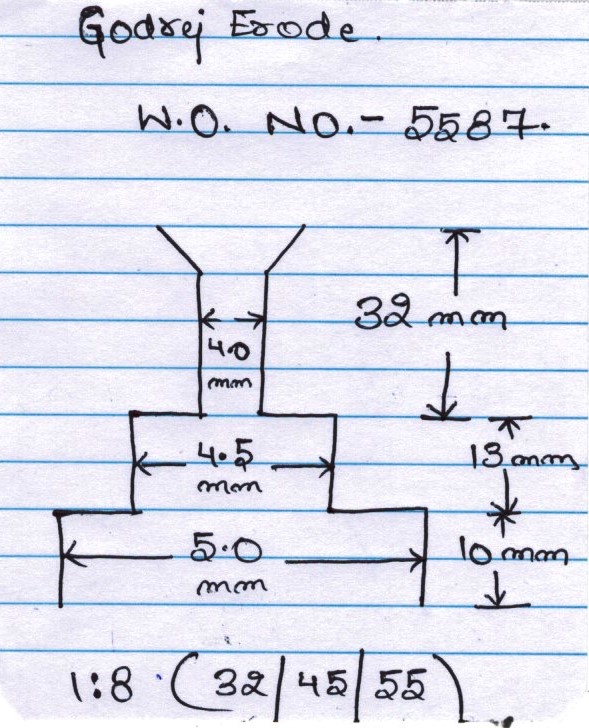 Godrej Erode.
W.O. NO.- 5587.
32 mm
4.0
mm
4.5
mm
13 mm
5.0
mm
10 mm
1:8 (32/45/55)